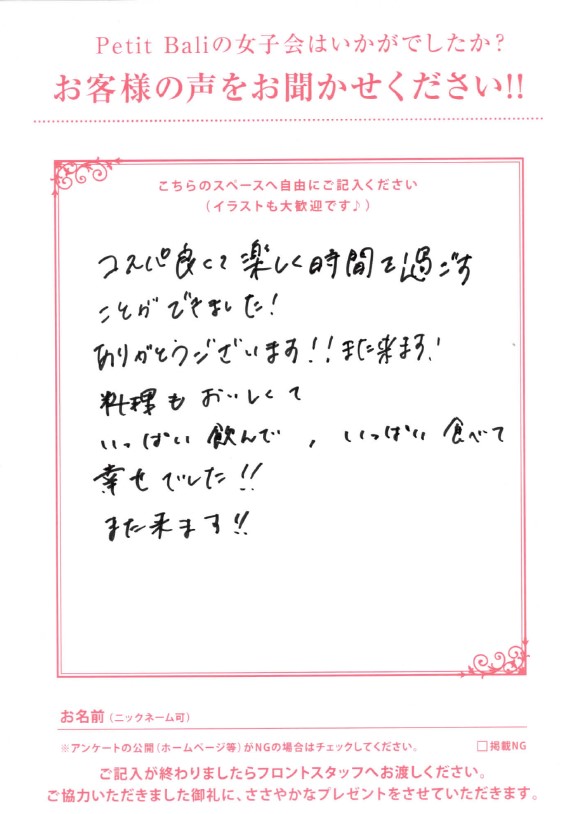 Petit Baliの女子会はいかがでしたか?
お客様の声をお聞かせください!!
こちらのスペースへ自由にご記入ください
(イラストも大歓迎です♪)
コスパ良くて楽しく時間を過ごす
ことができました!
ありがとうございます!!また来ます!
料理もおいしくて
いっぱい飲んで,いっぱい食べて
幸せでした!!
また来ます!!
お名前(ニックネーム可)
※アンケートの公開(ホームページ等)がNGの場合はチェックしてください。 □掲載NG
ご記入が終わりましたらフロントスタッフへお渡しください。
ご協力いただきました御礼に、ささやかなプレゼントをさせていただきます。